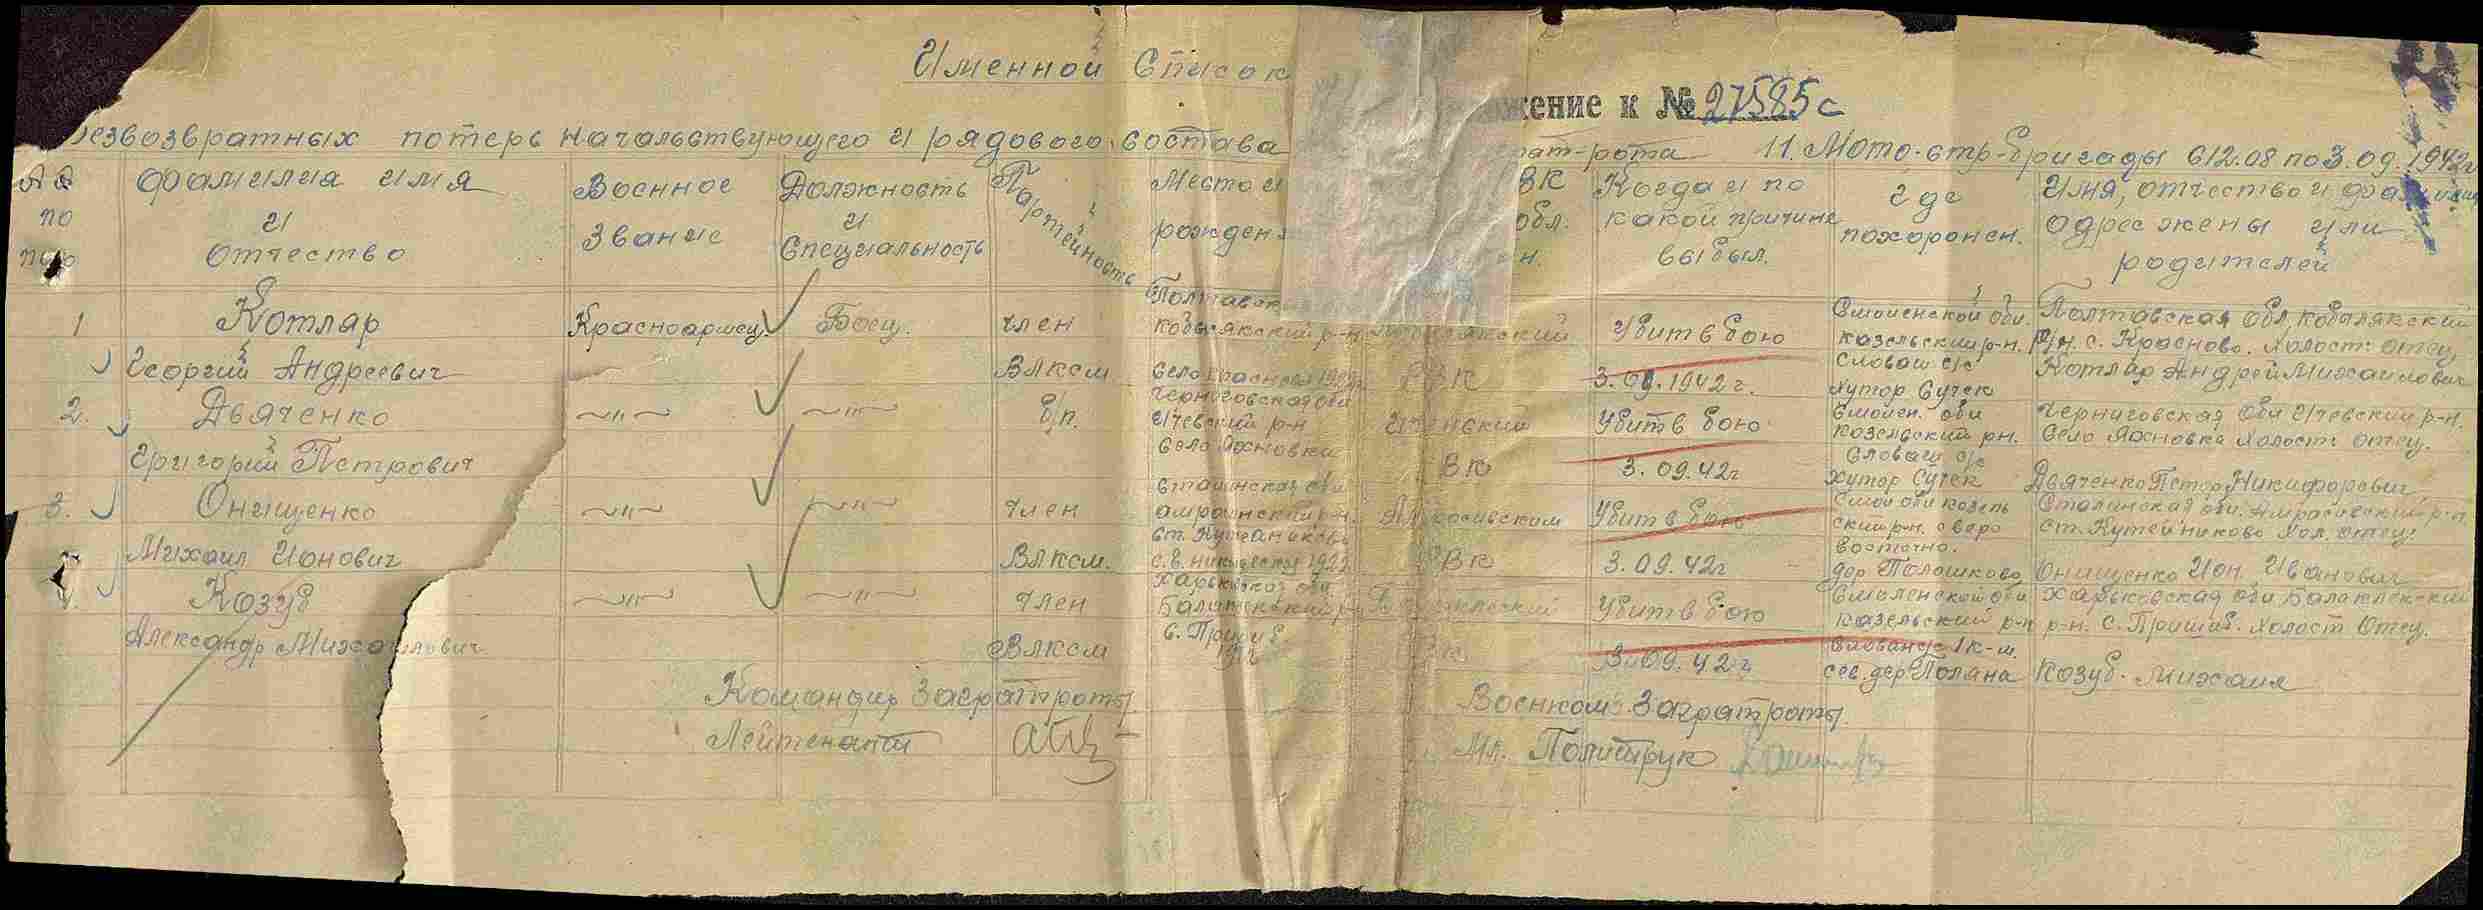 Именной Список
жение к № 27585с
езвозвратных потерь начальствующего и рядового состава рат-рота 11 Мото-стр-бригады с 12.08 по 3.09.1942г
№№ по пор
Фамилия имя и Отчество
Военное Звание
Должность и Специальность
Партейность
Место и рожден
ВК обл. н.
Когда и по какой причине выбыл.
где похоронен.
Имя, отчество и фамилия адрес жены или родителей
1 Котлар Георгий Андреевич
Красноармеец.
Боец.
член Влксм
Полтавск
кобылякский р-н
село Краснова
РВК
Убит в бою 3.09.1942г.
Смоленской обл.
казельский р-н.
Словаш с/с
хутор Сучек
Полтавская Обл, кобалякский
р/н. с. Красново. Холост: отец
Котлар Андрей Михайлович
2. Двяченко Григорий Петрович
—"— —"—
б/п.
Черниговская обл
Ичевский р-н
Село Яхновка
Иченский
ВК
Убит в бою 3.09.42г
Смолен. обл
козельский рн.
Словаш с/с
Хутор Сучек
Черниговская Обл Ичевский р-н.
Село Яхновка Холост: отец.
Двяченко Петор Никифорович
3. Онищенко Михаил Ионович
—"— —"—
Член Влксм.
Сталинская обл
РВК
Убит в бою 3.09.42г
Смол обл козель
ский р-н. северо
восточно.
дер Полошково
Сталинская обл. Амросиевский р-н.
ст. Кутейниково Хол, отец:
Онищенко Ион. Иванович
Козуб Александр Михайлович
—"— —"—
Член Влксм
Харьковская обл.
Убит в бою 3.09.42г
Смоленской обл
казельский р-н
1 к-м.
сев. дер Поляна
Харьковская обл Балаклекский
р-н. с. Пришиб. Холост Отец.
Козуб. Михаил
Командир Заградроты
Лейтенант
Военком Заградроты
Мл. Политрук